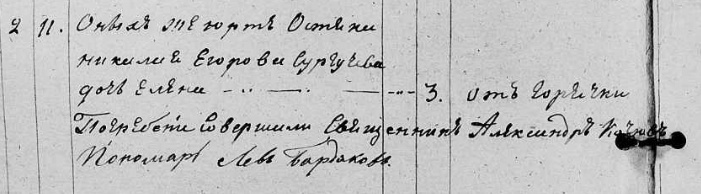 2 11. Оныхъ же юртъ Остяки
николия Егорова Сургучева
дочь Елена — 3. отъ горячки
Погребение совершили Священникъ Александръ
Пономарь Левъ Бардаковъ.